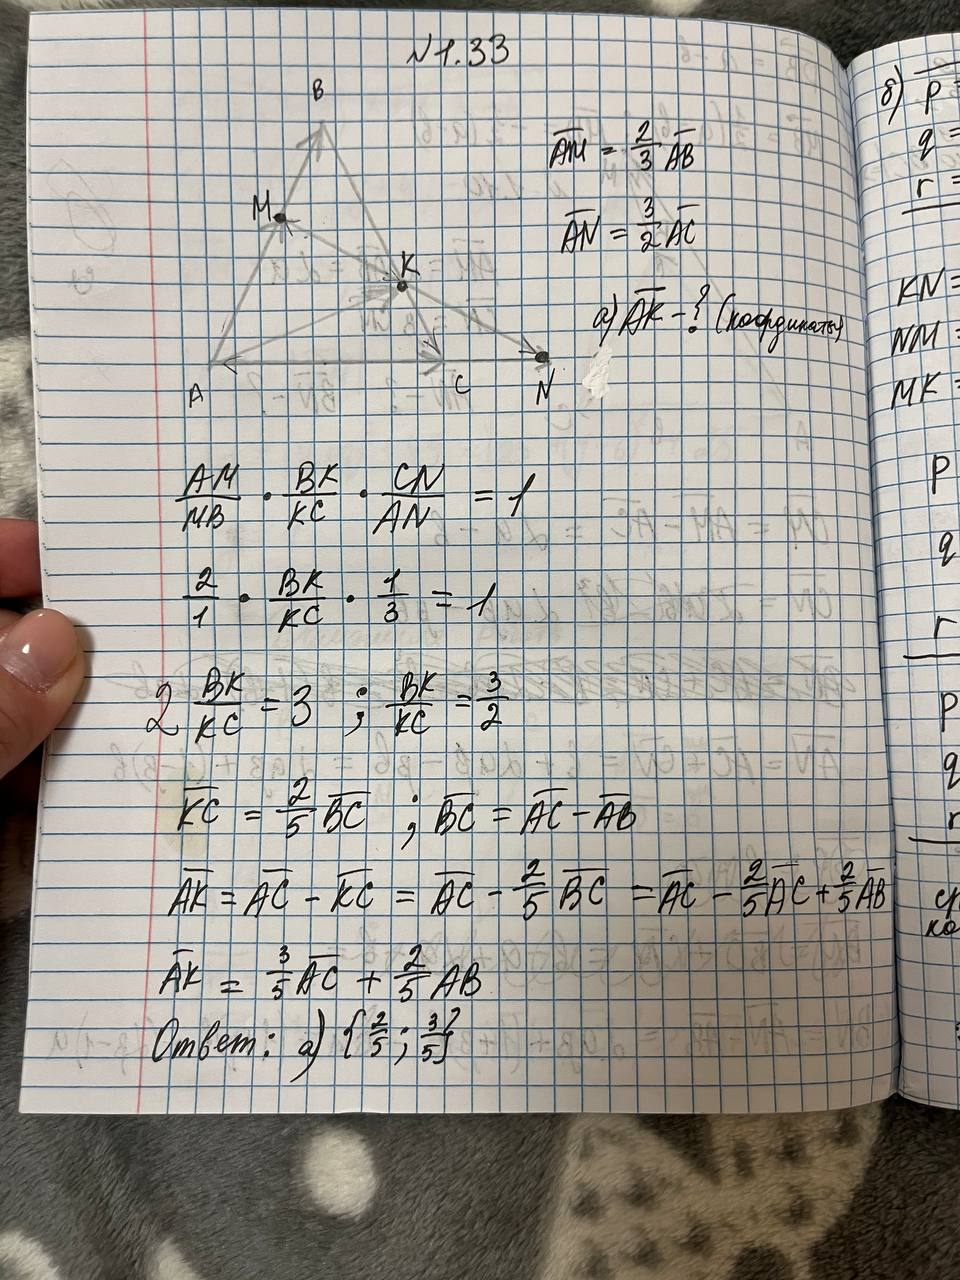 N1.33
B
M
K
A
C
N
AM = 2/3 AB
AN = 3/2 AC
а) AK - ? (координаты)
AM/MB · BK/KC · CN/AN = 1
2/1 · BK/KC · 1/3 = 1
2 BK/KC = 3 ; BK/KC = 3/2
KC = 2/5 BC ; BC = AC - AB
AK = AC - KC = AC - 2/5 BC = AC - 2/5 AC + 2/5 AB
AK = 3/5 AC + 2/5 AB
Ответ: а) {2/5 ; 3/5}
б) p
q =
r =
KN =
NM =
MK =
p
q
r
p
q